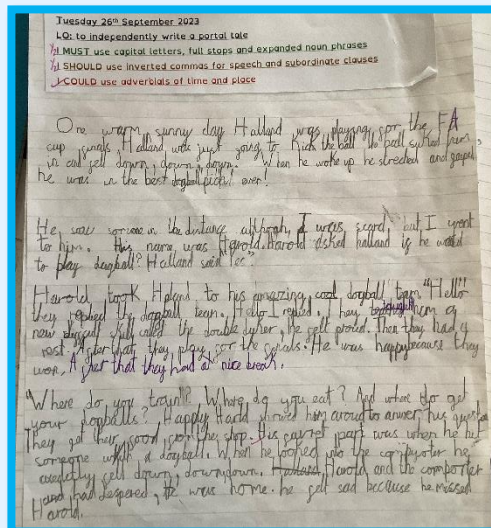 Tuesday 26th September 2023
LO: to independently write a portal tale
I MUST use capital letters, full stops and expanded noun phrases
I SHOULD use inverted commas for speech and subordinate clauses
I COULD use adverbials of time and place
One warm, sunny day Halland was playing for the FA
cup finals, Halland was just going to kick the ball the ball sucked him
in and fell down, down, down. When he woke up he streched and
he was in the best dogball pich! ever!
He saw someone in the distance although, I was scard, but I went
to him. His name was Harold. Harold asked halland if he
to play dogball? Halland said
Harold took Halland to his amazing, cool dogball team "Hello"
they replied the dogball team. Hello I replied. They him a
new skill called the double, he felt proud. Then they had a
rest. After that, they play for the finals. He was happy because they
won. After that they had a nice break.
"Where do you train? Where do you eat? And where do get
your dogballs? Happy Harold showed him around to anwer his
They got their from the shop. His part was when he hit
someone with a dogball. When he looked into the he
fell down, down down. Halland, Harold, and the
and had he was home. he felt sad because he missed
Harold.